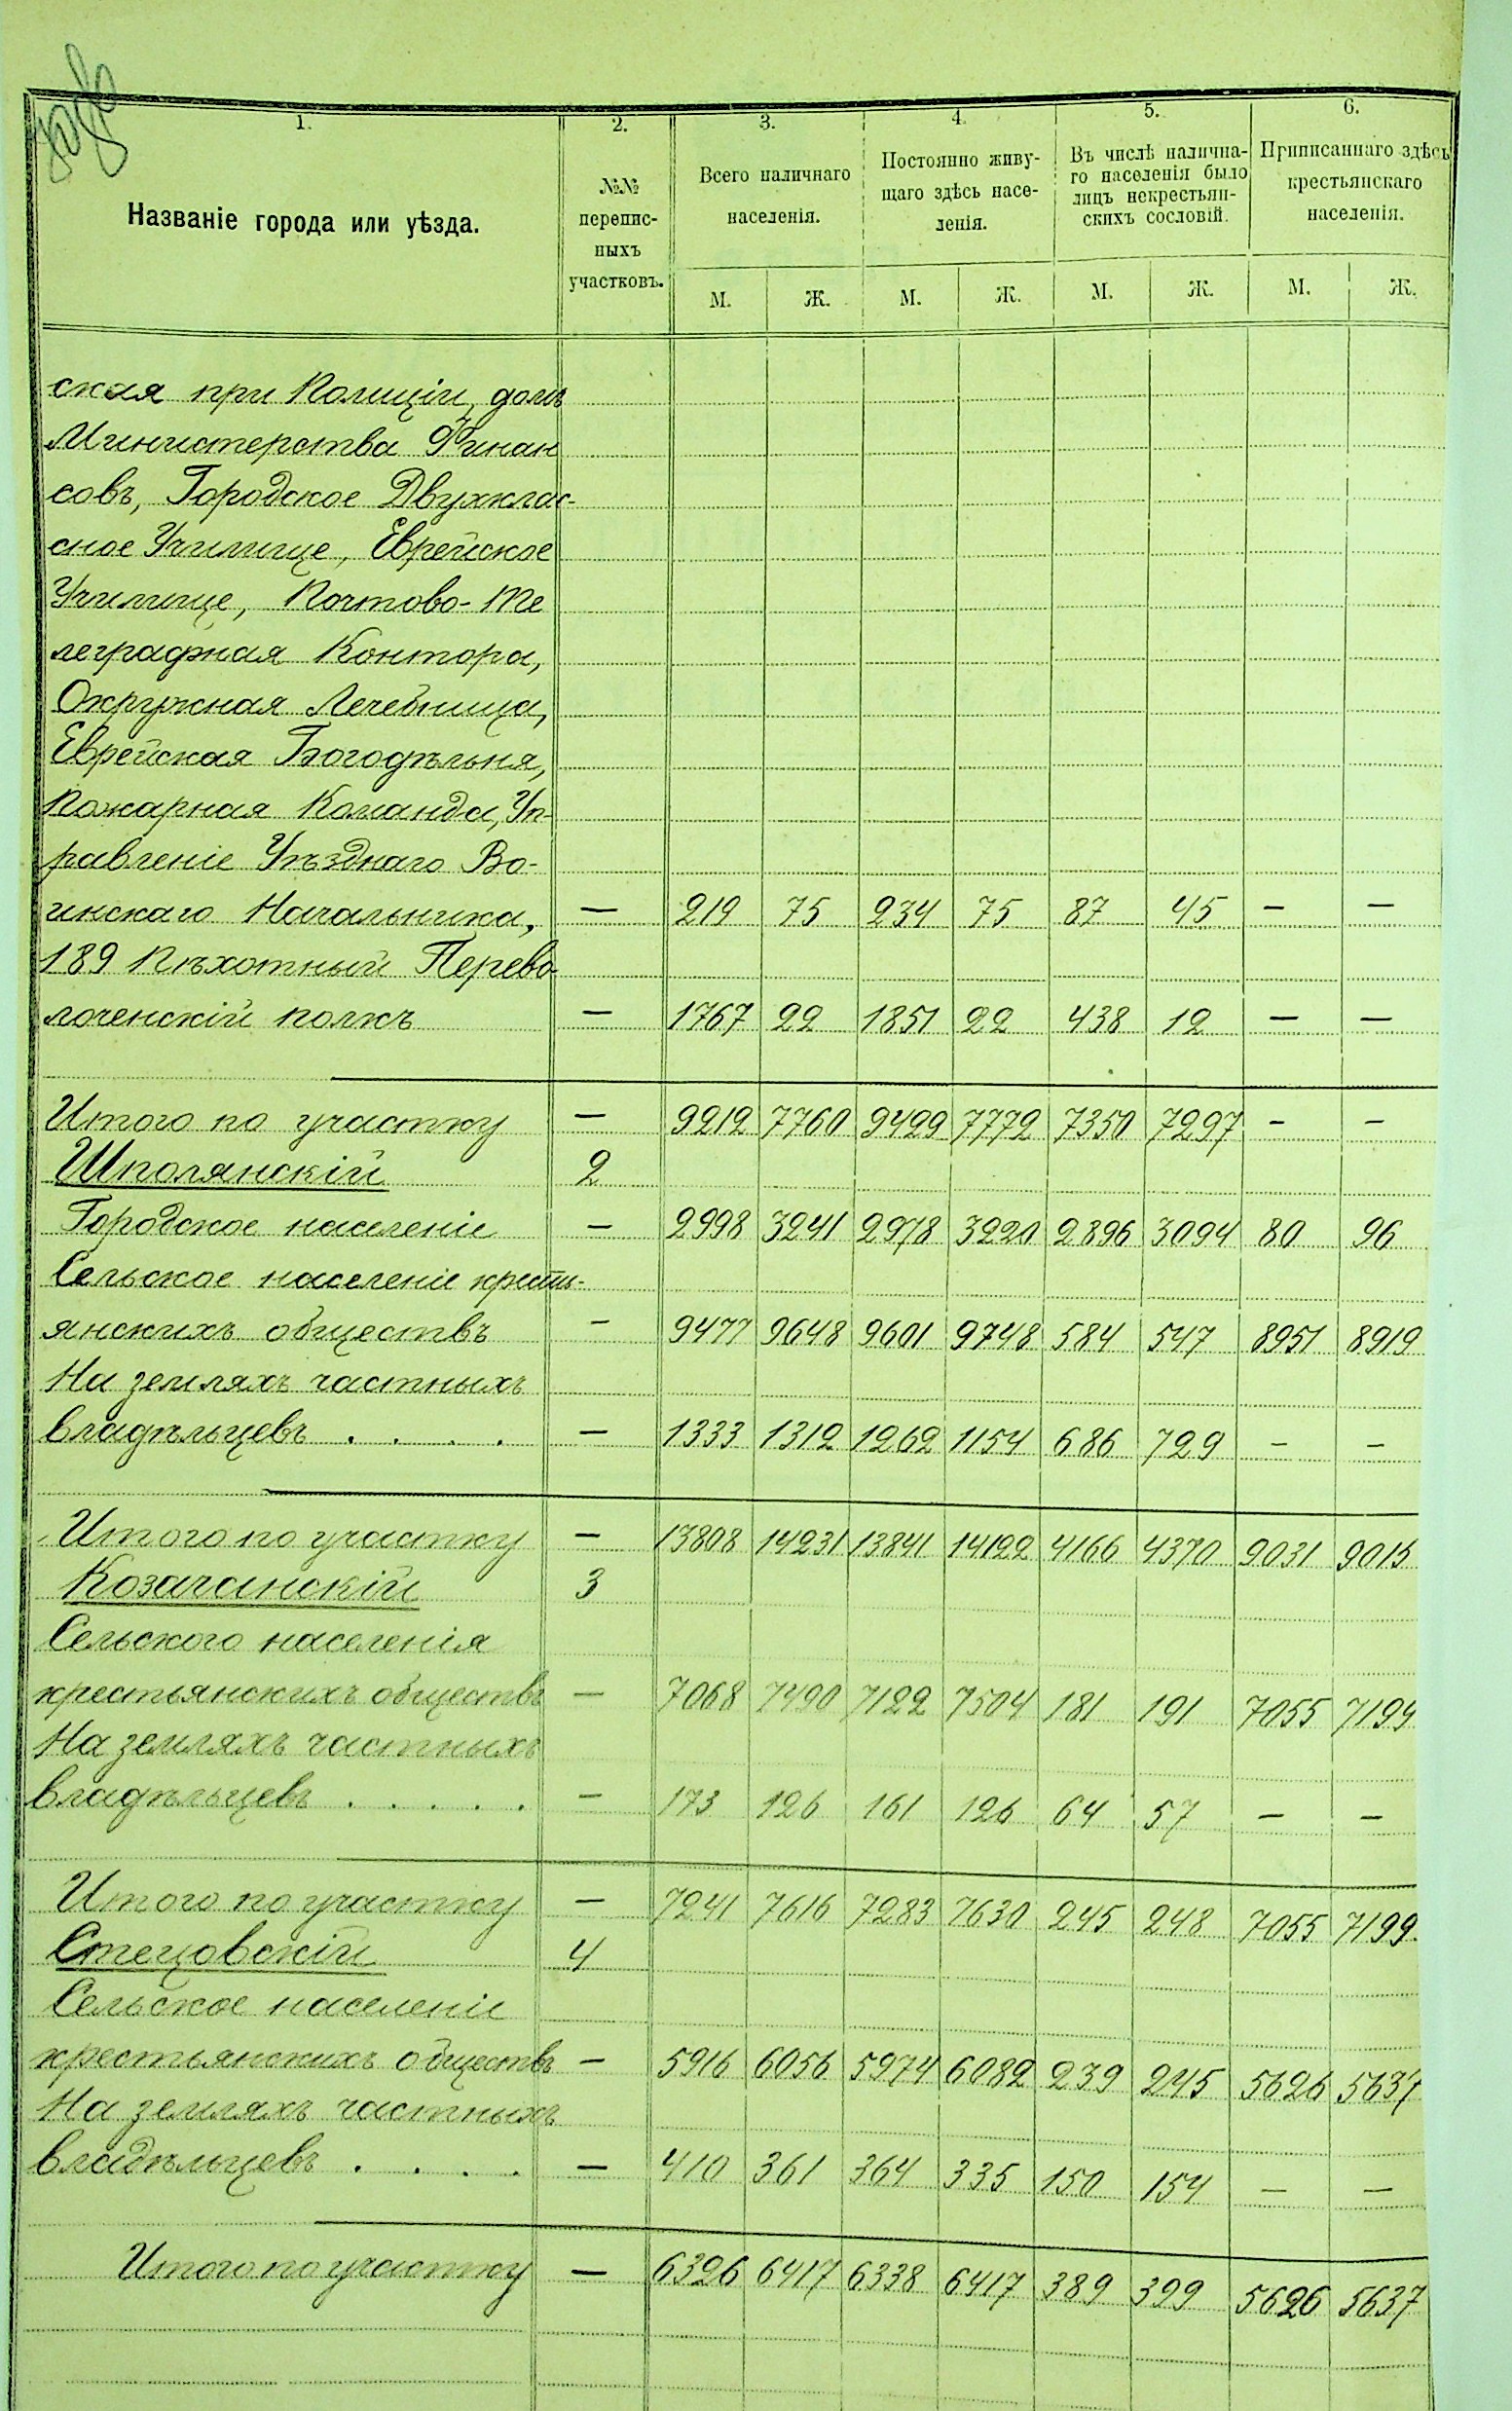 1. 2. 3. 4. 5. 6.
Названіе города или уѣзда.
№№
перепис-
ныхъ
участковъ.
Всего наличнаго
населенія.
Постоянно живу-
щаго здѣсь насе-
ленія.
Въ числѣ налична-
го населенія было
лицъ некрестьян-
скихъ сословій.
Приписаннаго здѣсь
крестьянскаго
населенія.
М. Ж. М. Ж. М. Ж. М. Ж.
ская при Полиціи, домъ
Министерства Финан
совъ, Городское Двухклас-
сное Училище, Еврейское
Училище, Почтово-Те
леграфная Контора,
Окружная Лечебница,
Еврейская Богодѣльня,
Пожарная Команда, Уп-
равленіе Уѣзднаго Во-
инскаго Начальника, — 219 75 234 75 87 45 — —
189 Пѣхотный Перево-
лоченскій полкъ — 1767 22 1851 22 438 12 — —
Итого по участку — 9212 7760 9429 7772 7350 7297 — —
Шполянскій 2
Городское населеніе — 2998 3241 2978 3220 2896 3094 80 96
Сельское населеніе кресть-
янскихъ обществъ — 9477 9648 9601 9748 584 547 8951 8919
На земляхъ частныхъ
владѣльцевъ . . . . — 1333 1312 1262 1154 686 729 — —
Итого по участку — 13808 14231 13841 14122 4166 4370 9031 9015
Козачанскій 3
Сельского населенія
крестьянскихъ обществъ — 7068 7490 7122 7504 181 191 7055 7199
На земляхъ частныхъ
владѣльцевъ . . . . . — 173 126 161 126 64 57 — —
Итого по участку — 7241 7616 7283 7630 245 248 7055 7199
Стецовскій 4
Сельское населеніе
крестьянскихъ обществъ — 5916 6056 5974 6082 239 245 5626 5637
На земляхъ частныхъ
владѣльцевъ . . . . — 410 361 364 335 150 154 — —
Итого по участку — 6326 6417 6338 6417 389 399 5626 5637